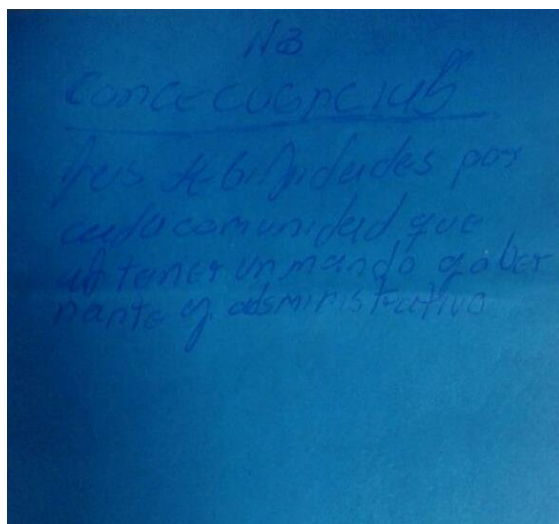 N3
CONCECUENCIAS
sus debilidades por
cada comunidad que
al tener un mando gober
nante y administrativo